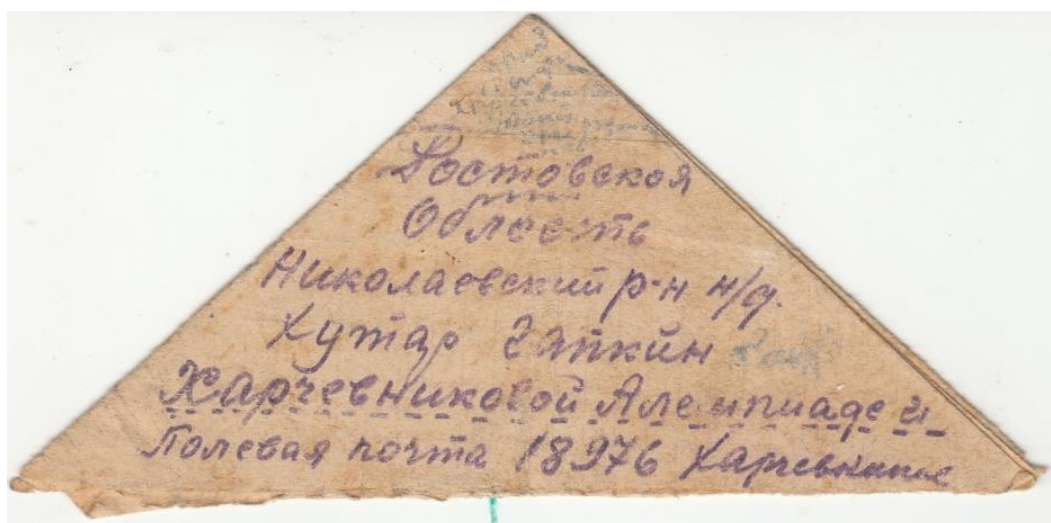 Ростовская
Область
Николаевский р-н н/д.
Хутар Гапкин
Харчевниковой Алемпиаде И
Полевая почта 18976 Харчевников